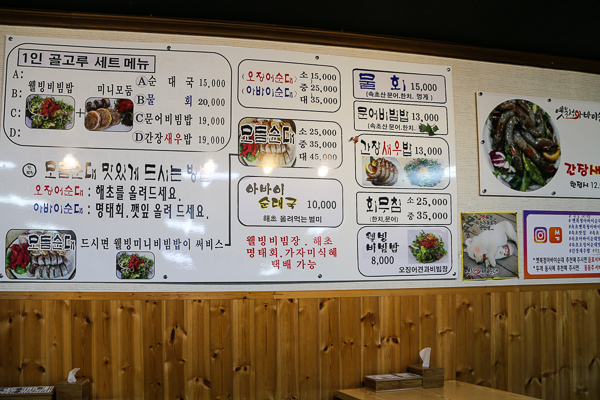 1인 골고루 세트메뉴
A:
B:
C:
D:
웰빙비빔밥
+
미니모둠
A 순대국 15,000
B 물회 20,000
C 문어비빔밥 19,000
D 간장새우밥 19,000
모듬순대 맛있게 드시는
오징어순대 : 해초를 올려드세요.
아바이순대 : 명태회.깻잎 올려 드세요.
모듬순대 드시면 웰빙미니비빔밥이 써비스
(오징어순대) 소 15,000
(아바이순대) 중 25,000
대 35,000
모듬순대
소 25,000
중 35,000
대 45,000
아바이
순대국 10,000
해초 올려먹는 별미
웰빙비빔장 . 해초
명태회.가자미식혜
택배 가능
물회 15,000
(속초산 문어.한치. 멍게)
문어비빔밥 13,000
(속초산 문어.한치)
간장새우밥 13,000
회무침
(한치,문어)
중 25,000
대 35,000
웰빙
비빔밥
8,000
오징어견과비빔장
간장새